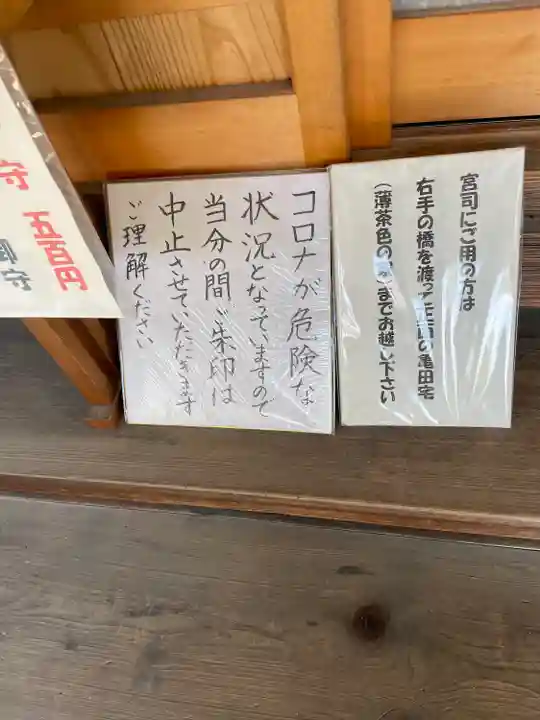 宮司にご用の方は
右手の橋を渡って正面の亀田宅
(薄茶色の までお越し下さい
コロナが危険な
状況となっていますので
当分の間ご朱印は
中止させていただきます
ご理解ください
守 五百円
御守